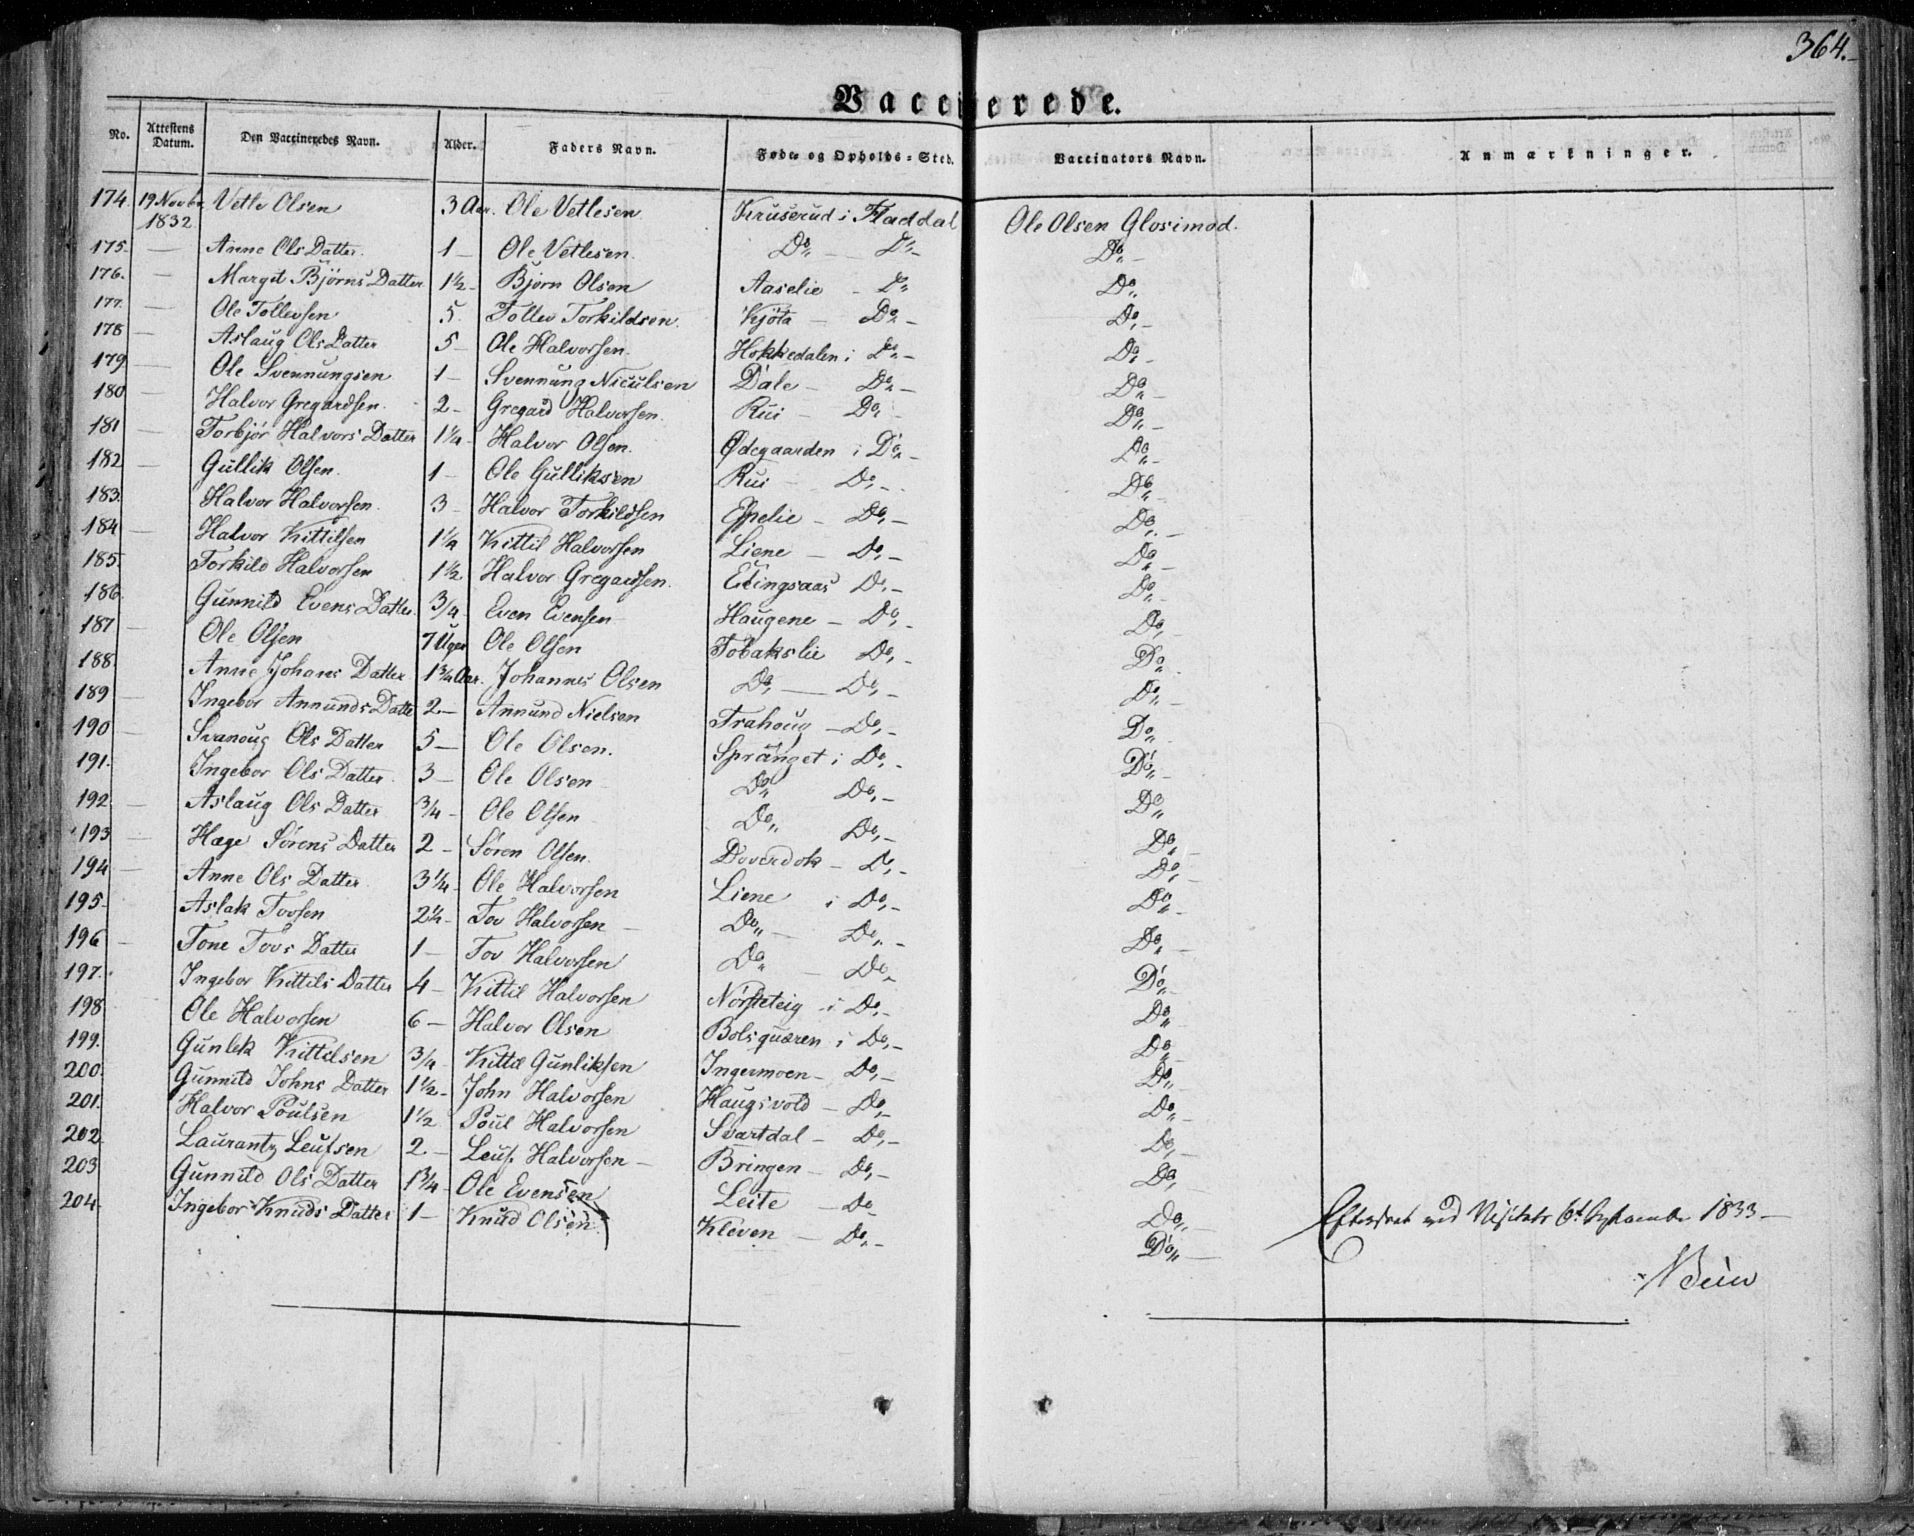 364.
Vaccinerede.
No. Attestens Datum. Den Vaccineredes Navn. Alder. Faders Navn. Føde- og Opholds-Sted. Vaccinators Navn. Anmærkninger.
174. 19 Novbr. 1832. Vetle Olsen 3 Aar. Ole Vetlesen Kruserud i Fladdal Ole Olsen Glosimod.
175. — Anne Ols Datter. 1 — Ole Vetlesen. Do — Do — Do —
176. — Margit Björns Datter 1½ — Bjørn Olsen Aaselie — Do Do
177. — Ole Tollevsen 5. Tollev Torkildsen. Kjöta — Do — Do —
178 — Aslaug Ols Datter 5 — Ole Halvorsen. Hokkedalen i Do — Do —
179 — Ole Svennungsen 1 — Svennung Niculsen Dale — Do — Do —
180 — Halvor Gregardsen. 2 — Gregard Halvorsen. Rui — Do — Do —
181 — Torbjør Halvors Datter 1¼ — Halvor Olsen. Ødegaarden i Do — Do —
182 — Gullik Olsen. 1 — Ole Gulliksen Rui — Do — Do —
183. Halvor Halvorsen. 3 — Halvor Torkildsen Espelie — Do — Do —
184 — Halvor Kittilsen 1¼ Kittil Halvorsen Liene — Do — Do —
185. Torkild Halvorsen 1½ Halvor Gregardsen. Do — Do —
186. Gunnild Evens Datter. 3/4 — Even Evensen Haugene — Do — Do —
187 — Ole Olsen 7 Uger Ole Olsen Tobakslie Do — Do
188. Anne Johans Datter 1¾ Aar. Johannes Olsen Do — Do — Do —
189 — Ingebor Annunds Datter 2 — Annund Nielsen Trahoug — Do — Do
190 — Svanoug Ols Datter 5 — Ole Olsen. Spranget i Do — Do —
191. Ingebor Ols Datter. 3 — Ole Olsen Do Do — Do
192 — Aslaug Ols Datter 3/4 — Ole Olsen Do Do — Do —
193 — Hæge Sørens Datter 2 — Søren Olsen. Doverdok — Do — Do —
194 — Anne Ols Datter 3¼ — Ole Halvorsen Liene i Do — Do —
195 — Aslak Tovsen 2½ — Tov Halvorsen — Do — Do — Do —
196 — Tone Tovs Datter 1 — Tov Halvorsen Do — Do — Do —
197. Ingebor Kittils Datter 4 — Kittil Halvorsen Nørsteteig i Do — Do
198 Ole Halvorsen 6 — Halvor Olsen Bolsquæren i Do — Do
199. Gunlek Kittilsen 3/4 Kittil Gunliksen Ingermoen — Do — Do
200 Gunnild Johns Datter 1½ — John Halvorsen Haugsvold — Do — Do —
201. Halvor Poulsen 1½ Poul Halvorsen Svartdal — Do — Do —
202. Laurantz Leufsen 2 — Leuf Halvorsen — Bringen — Do — Do —
203 Gunnild Ols Datter 1¾ — Ole Evensen Leite — Do Do —
204. Ingebor Knuds Datter 1 — Knud Olsen. Kleven — Do — Do —
Efterseet ved Visitats 6t September 1833 —